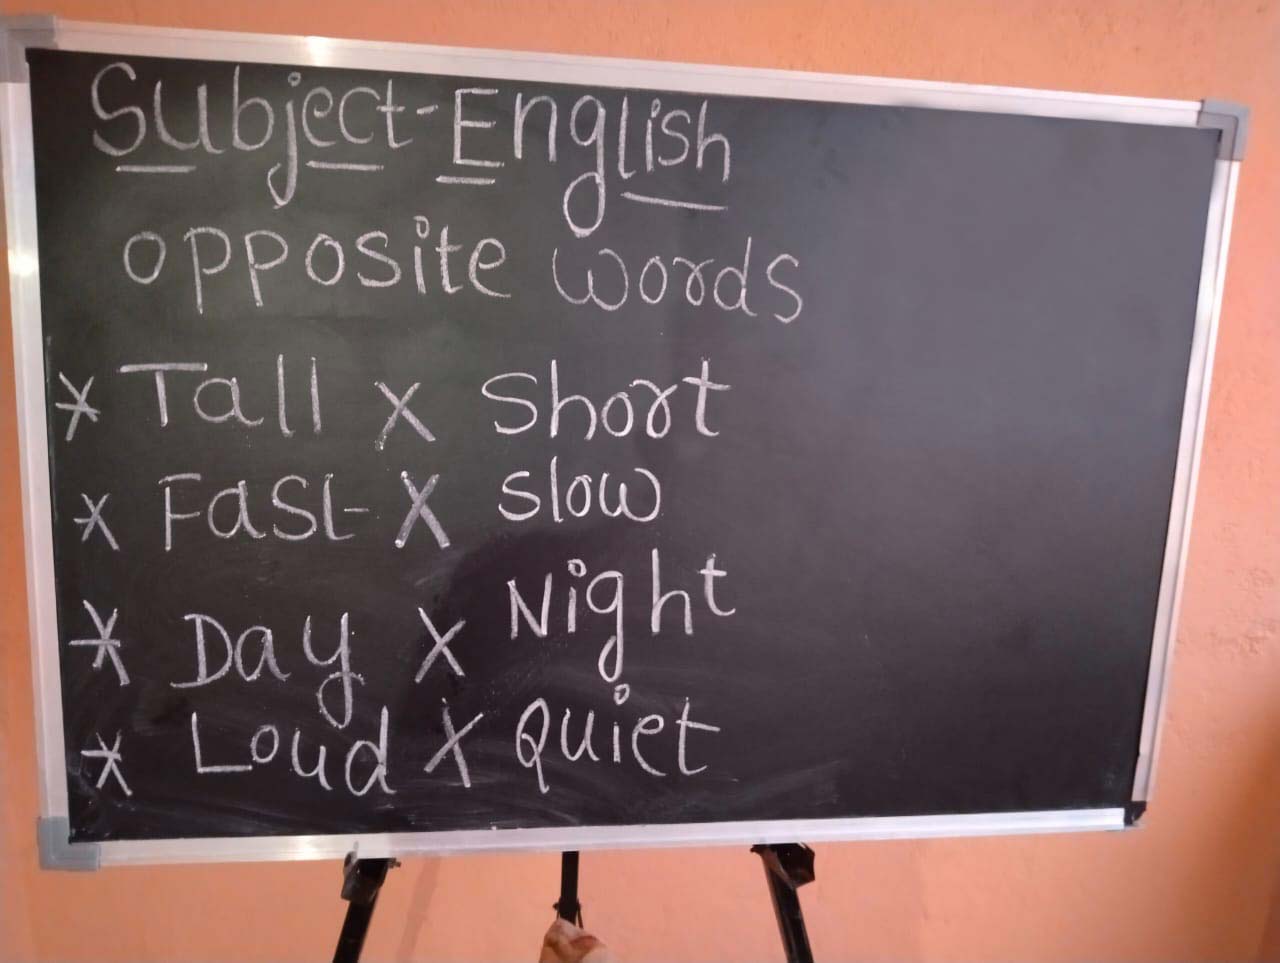 Subject-English
opposite words
* Tall X Short
* Fast X slow
* Day X Night
* Loud X Quiet